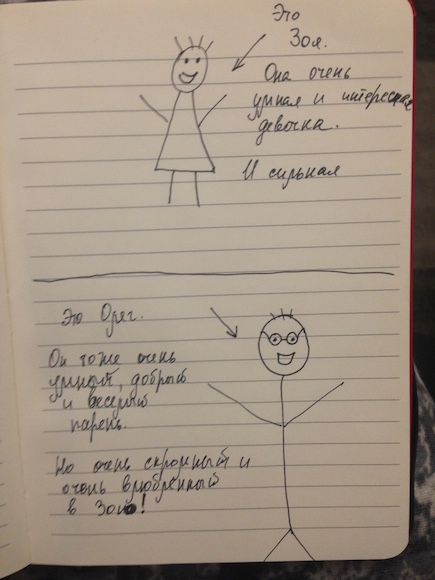 Это
Зоя.
Она очень
умная и интересная
девочка.
И сильная
Это Олег.
Он тоже очень
умный, добрый
и веселый
парень.
Но очень скромный и
очень влюбленный
в Зою!